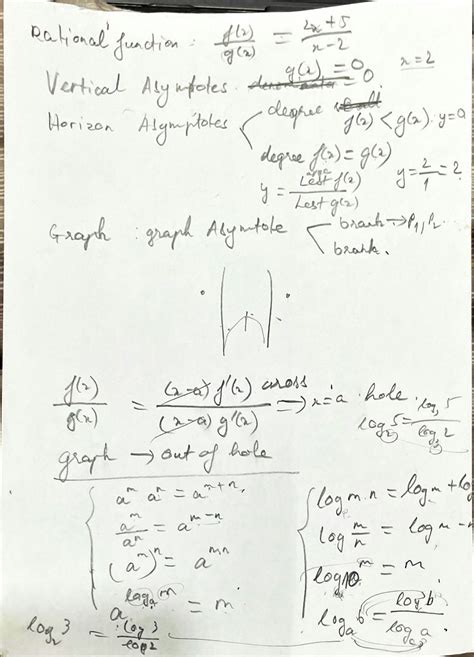 Rational function : f(x)/g(x) = 2x+5/x-2
Vertical Asymptotes. g(x) = 0 x=2
Horizon Asymptotes degree f(x) < g(x). y=0
degree f(x) = g(x)
y = f(x)/g(x) y = 2/1 = 2
Graph : graph Asymtote brank → P1, P2
brank.
f(x)/g(x) = (x-a) f'(x)/(x-a) g'(x) cross ⇒ x=a hole.
log₂5 = log 5/log 2
graph → out of hole
aᵐ aⁿ = aᵐ⁺ⁿ.
aᵐ/aⁿ = aᵐ⁻ⁿ
(aᵐ)ⁿ = aᵐⁿ
a^(logₐ m) = m
log₂3 = log 3/log 2
log m.n = log m + lo
log m/n = log m -
log 10ᵐ = m
logₐ b = log b/log a